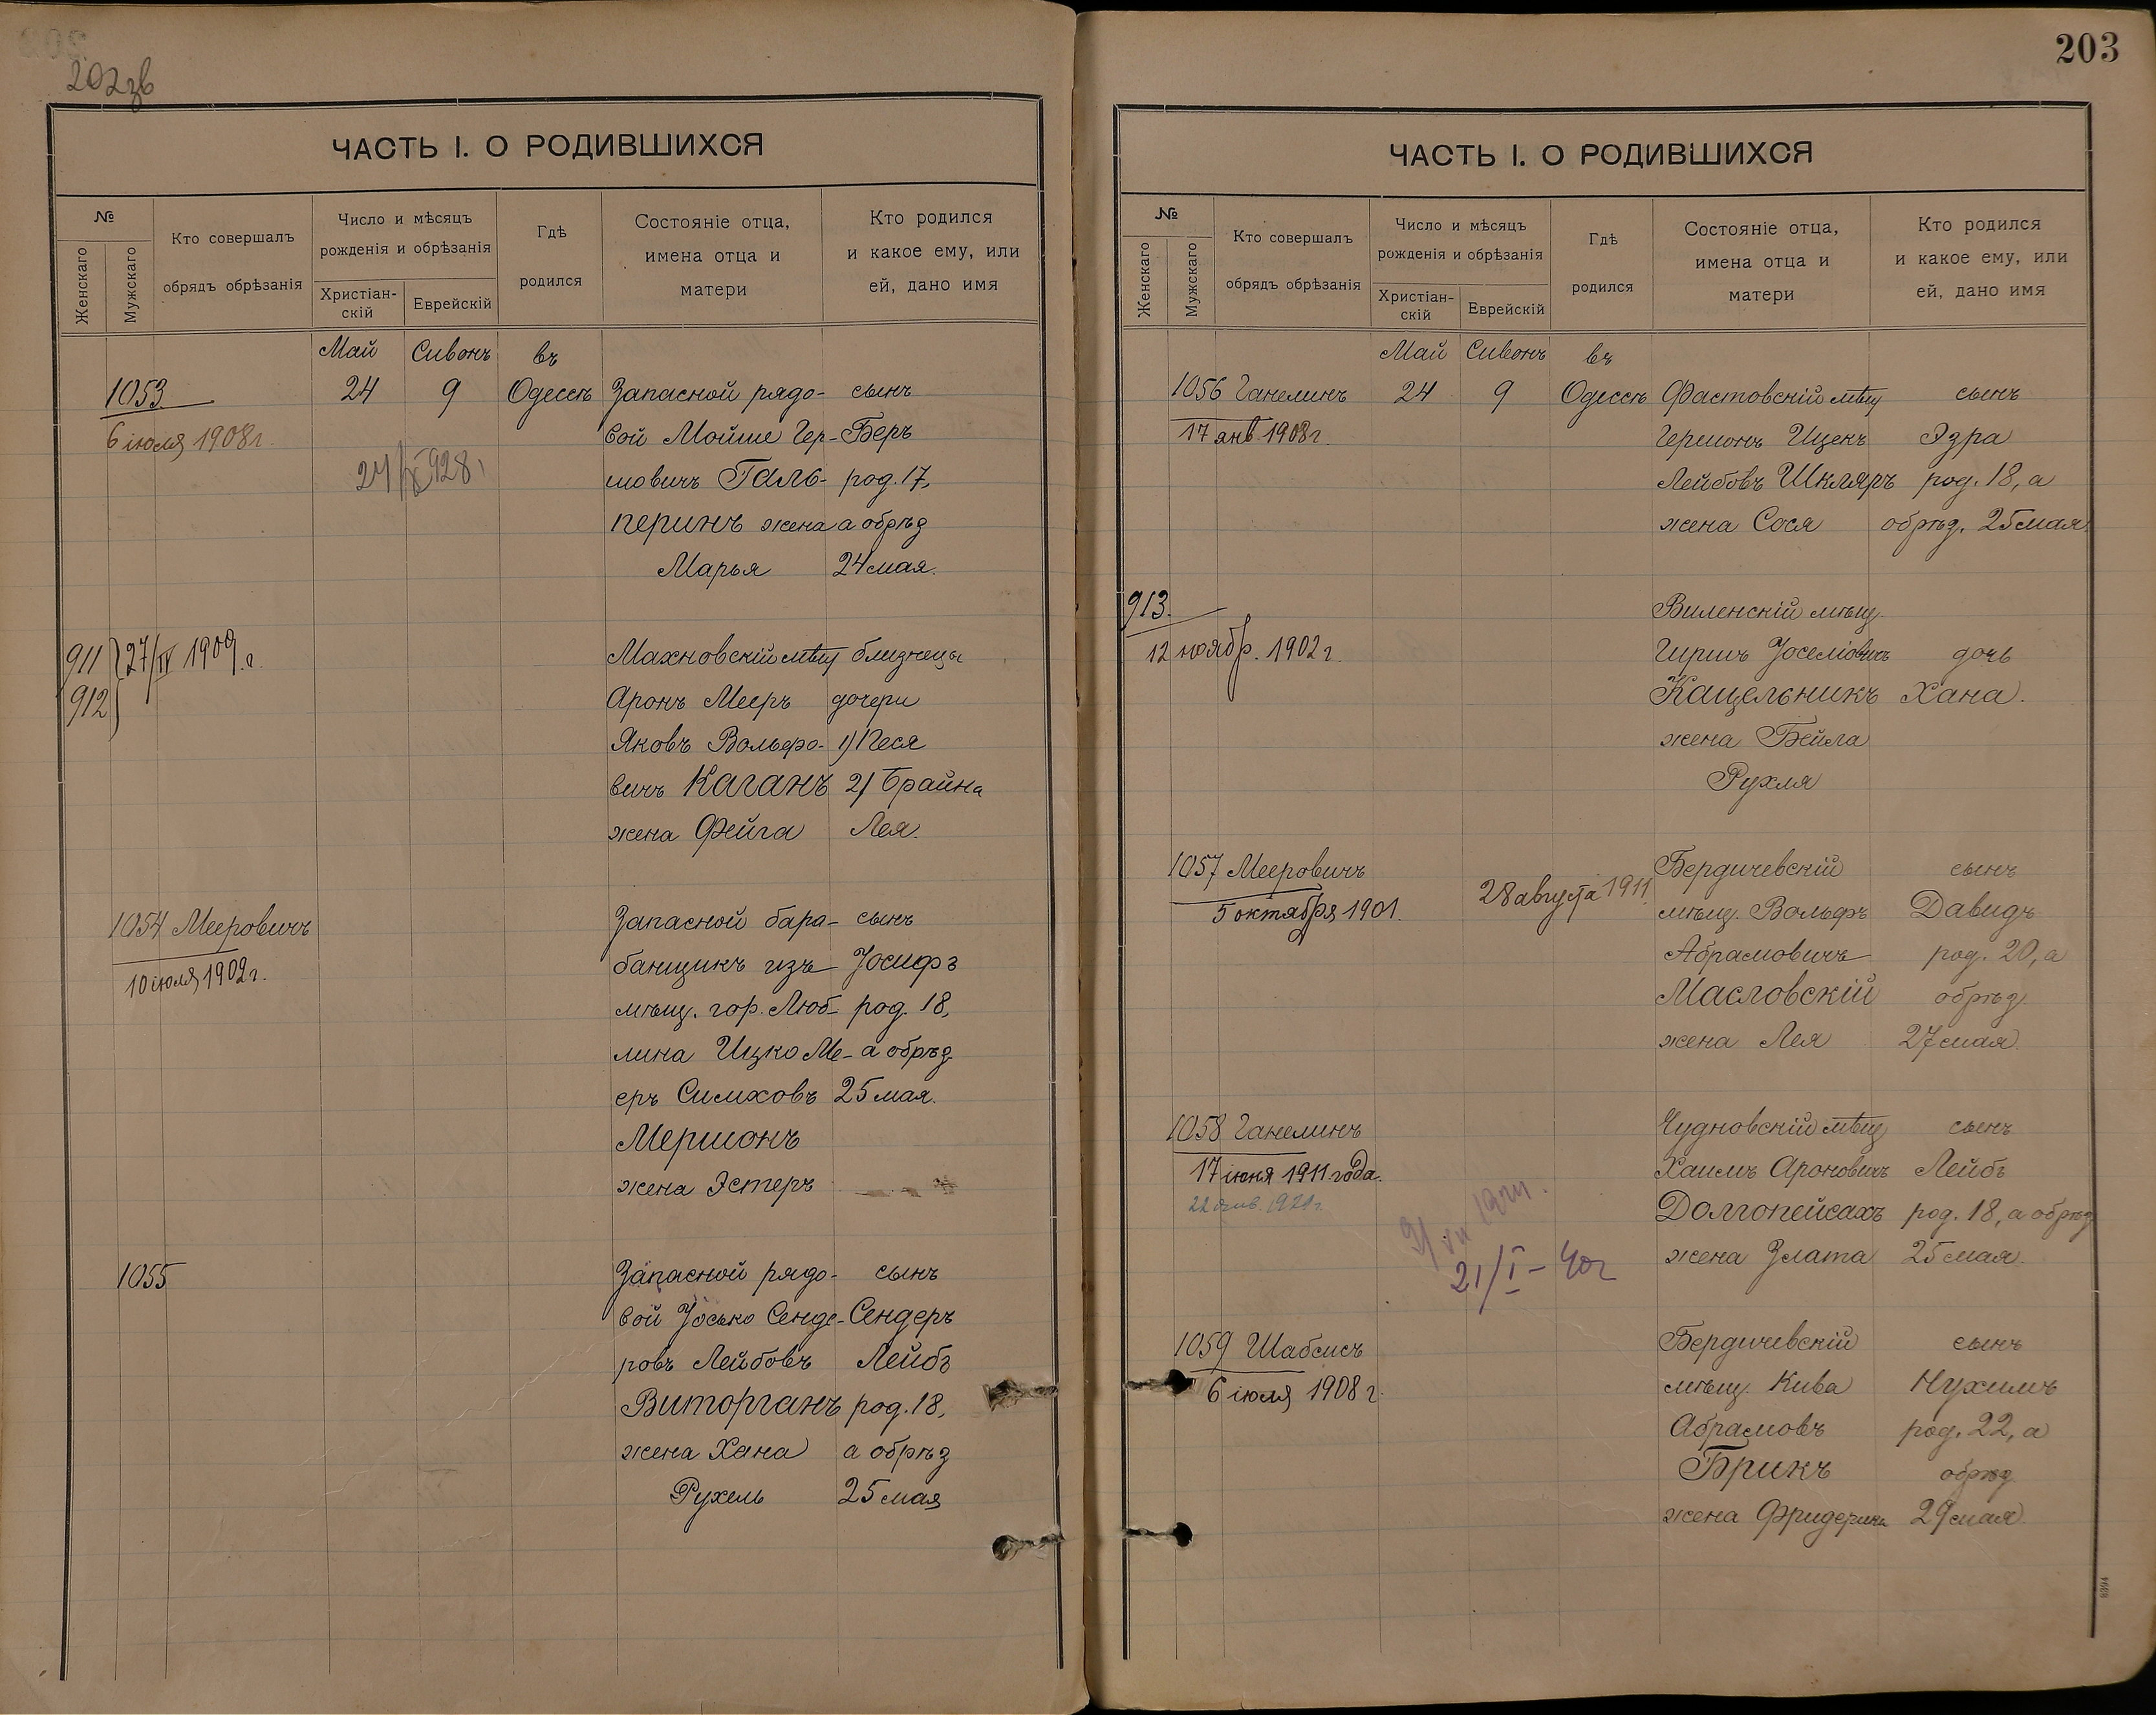 202 зв
ЧАСТЬ I. О РОДИВШИХСЯ
№
Женскаго
Мужскаго
Кто совершалъ
обрядъ обрѣзанія
Число и мѣсяцъ
рожденія и обрѣзанія
Христіан-
скій
Еврейскій
Гдѣ
родился
Состояніе отца,
имена отца и
матери
Кто родился
и какое ему, или
ей, дано имя
Май Сивонъ въ
1053 24 9 Одессѣ Запасной рядо- сынъ
6 іюля 1908 г. вой Мойше Гер- Беръ
шовичъ Галь- род. 17,
перинъ жена а обрѣз
Марья 24 мая.
911 27/IV 1909 г. Махновскій мѣщ близнецы
912 Аронъ Мееръ дочери
Яковъ Вольфо- 1) Песя
вичъ Каганъ 2) Брайна
жена Фейга Лея.
1054 Мееровичъ Запасной бара- сынъ
10 іюля 1902 г. банщикъ изъ Іосифъ
мѣщ. гор. Люб- род. 18,
лина Ицко Ме- а обрѣз
еръ Симховъ 25 мая.
Мершонъ
жена Эстеръ
1055 Запасной рядо- сынъ
вой Іосько Сенде- Сендеръ
ровъ Лейбовъ Лейбъ
Виторганъ род. 18,
жена Хана а обрѣз
Рухель 25 мая
203
ЧАСТЬ I. О РОДИВШИХСЯ
№
Женскаго
Мужскаго
Кто совершалъ
обрядъ обрѣзанія
Число и мѣсяцъ
рожденія и обрѣзанія
Христіан-
скій
Еврейскій
Гдѣ
родился
Состояніе отца,
имена отца и
матери
Кто родился
и какое ему, или
ей, дано имя
Май Сивонъ въ
1056 Ганелинъ 24 9 Одессѣ Фастовскій мѣщ сынъ
17 янв. 1908 г. Гершонъ Ицекъ Эзра
Лейбовъ Шкляръ род. 18, а
жена Сося обрѣз. 25 мая
913. Виленскій мѣщ.
12 ноябр. 1902 г. Гиршъ Іоселіовичъ дочь
Кацельникъ Хана.
жена Бейла
Рухля
1057 Мееровичъ Бердичевскій сынъ
5 октября 1901. 28 августа 1911. мѣщ. Вольфъ Давидъ
Абрамовичъ род. 20, а
Масловскій обрѣз
жена Лея 27 мая
1058 Ганелинъ Чудновскій мѣщ сынъ
17 іюня 1911 года. Хаимъ Ароновичъ Лейбъ
Долгопейсахъ род. 18, а обрѣз
21/I – 40 г жена Злата 25 мая.
1059 Шабсисъ Бердичевскій сынъ
6 іюля 1908 г. мѣщ. Кива Нухимъ
Абрамовъ род. 22, а
Брикъ обрѣз
жена Фридерика 29 мая